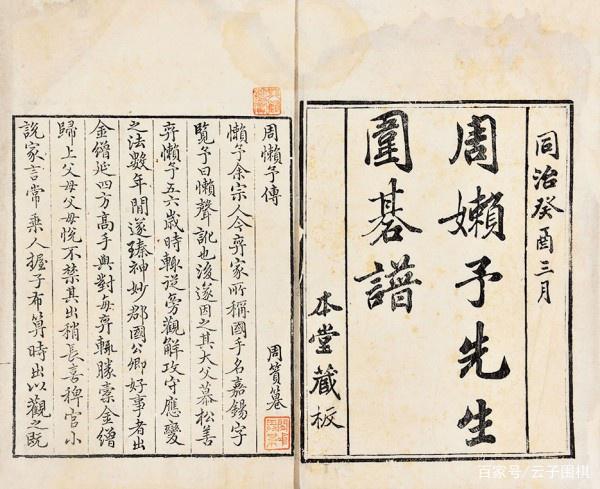 同治癸酉三月
周嬾予先生
圍碁譜
本堂藏板
周懶予傳
周
懶予余宗人今弈家所稱國手名嘉錫字
覽予曰懶聲訛也後遂因之其大父慕松善
弈懶予五六歲時輒從旁觀解攻守應變
之法數年間遂臻神妙郡國公卿好事者出
金繒延四方高手與對每弈輒勝橐金繒
歸上父母父母悅不禁其出稍長喜稗官小
說家言常乘人握子布算時出以觀之既
百家号/云子围棋